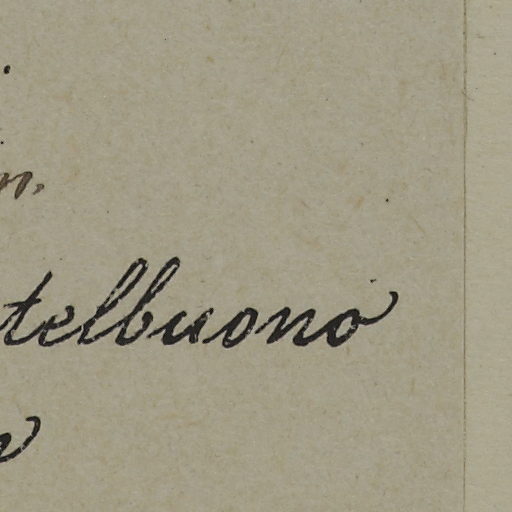 n.
telbuono